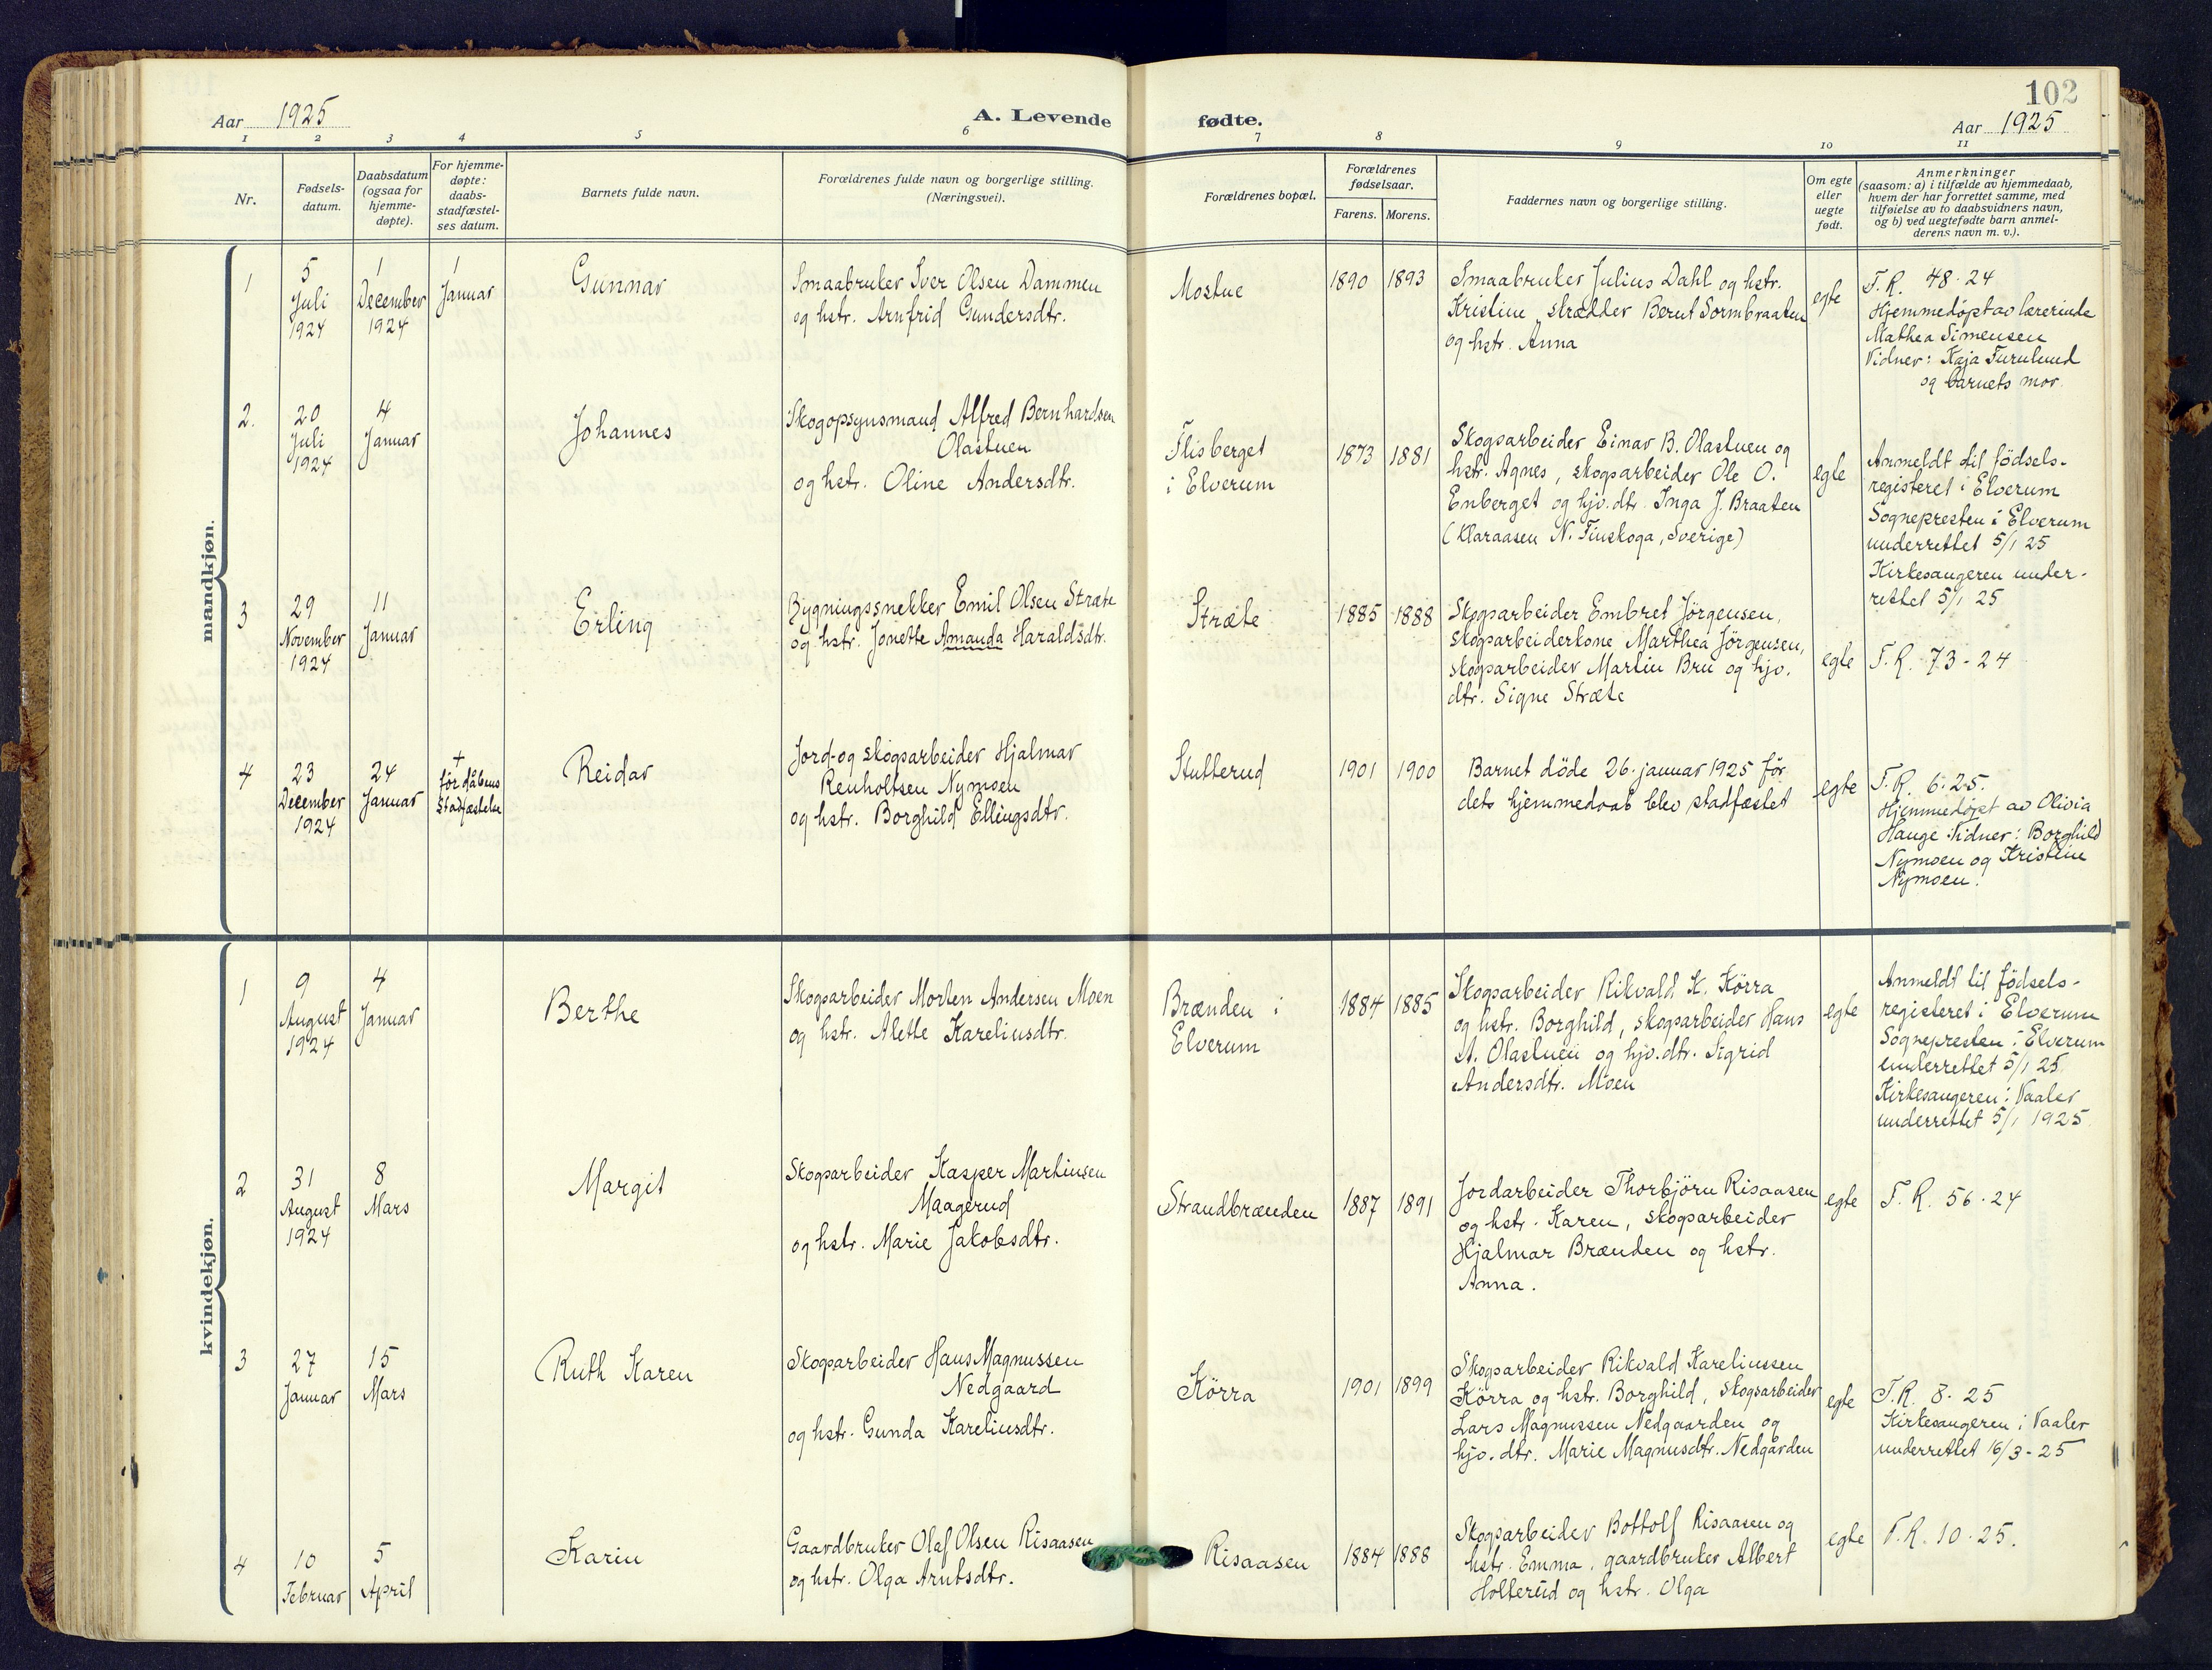 102
Aar 1925
A. Levende fødte.
Aar 1925
1 2 3 4 5 6 7 8 9 10 11
Nr.
Fødsels-
datum.
Daabsdatum
(ogsaa for
hjemme-
døpte).
For hjemme-
døpte:
daabs-
stadfæstel-
ses datum.
Barnets fulde navn.
Forældrenes fulde navn og borgerlige stilling.
(Næringsvei).
Forældrenes bopæl.
Forældrenes
fødselsaar.
Farens. Morens.
Faddernes navn og borgerlige stilling.
Om egte
eller
uegte
født.
Anmerkninger
(saasom: a) i tilfælde av hjemmedaab,
hvem der har forrettet samme, med
tilføielse av to daabsvidners navn,
og b) ved uegtefødte barn anmel-
derens navn m. v.).
mandkjøn.
1
5
Juli
1924
1
December
1924
1
Januar
Gunnar
Smaabruker Iver Olsen Dammen
og hstr. Arnfrid Gundersdtr.
Mostue
1890
1893
Smaabruker Julius Dahl og hstr.
Kristine, skrædder Bernt Sormbraaten
og hstr. Anna
egte
F.R. 48-24
Hjemmedøpt av lærerinde
Mathea Simensen
Vidner: Kaja Furulund
og barnets mor.
2.
20
Juli
1924
4
Januar
Johannes
Skogopsynsmand Alfred Bernhardsen
Olastuen
og hstr. Oline Andersdtr.
Flisberget
i Elverum
1873
1881
Skogsarbeider Einar B. Olastuen og
hstr. Agnes, skogsarbeider Ole O.
Enberget og hjv.dtr. Inga J. Braaten
(Klaraasen N. Finskoga, Sverige)
egte
Anmeldt til fødsels-
registeret i Elverum
Sognepresten i Elverum
underrettet 5/1 25
Kirkesangeren under-
rettet 5/1 25
3
29
November
1924
11
Januar
Erling
Bygningssnekker Emil Olsen Stræte
og hstr. Jonette Amanda Haraldsdtr.
Stræte
1885
1888
Skogsarbeider Embret Jörgensen,
skogsarbeiderkone Marthea Jörgensen,
skogsarbeider Martin Bru og hjv.
dtr. Signe Stræte
egte
F.R. 73-24
4
23
December
1924
24
Januar
+
før dåbens
Stadfæstelse
Reidar
Jord- og skogsarbeider Hjalmar
Renholtsen Nymoen
og hstr. Borghild Ellingsdtr.
Stutterud
1901
1900
Barnet döde 26. januar 1925 før
dets hjemmedaab blev stadfæstet
egte
F.R. 6-25.
Hjemmedøpt av Olivia
Hauge. Vidner: Borghild
Nymoen og Kristine
Nymoen.
kvindekjøn.
1
9
August
1924
4
Januar
Berthe
Skogsarbeider Morten Andersen Moen
og hstr. Alette Kareliusdtr.
Brænden i
Elverum
1884
1885
Skogsarbeider Rikvald K. Körra
og hstr. Borghild, skogsarbeider Hans
A. Olastuen og hjv.dtr. Sigrid
Andersdtr. Moen
egte
Anmeldt til fødsels-
registeret i Elverum
Sognepresten i Elverum
underrettet 5/1 25.
Kirkesangeren i Vaaler
underrettet 5/1 1925
2
31
August
1924
8
Mars
Margit
Skogsarbeider Kasper Martinsen
Maagerud
og hstr. Marie Jakobsdtr.
Strandbrænden
1887
1891
Jordarbeider Thorbjörn Risaasen
og hstr. Karen, skogsarbeider
Hjalmar Brænden og hstr.
Anna.
egte
F.R. 56-24
3
27
Januar
15
Mars
Ruth Karen
Skogsarbeider Hans Magnussen
Nedgaard
og hstr. Gunda Kareliusdtr.
Körra
1901
1899
Skogsarbeider Rikvald Kareliussen
Körra og hstr. Borghild, skogsarbeider
Lars Magnussen Nedgaarden og
hjv. dtr. Marie Magnusdtr. Nedgården
egte
F.R. 8-25
Kirkesangeren i Vaaler
underrettet 16/3-25
4
10
Februar
5
April
Karin
Gaardbruker Olaf Olsen Risaasen
og hstr. Olga Arntsdtr.
Risaasen
1884
1888
Skogsarbeider Bottolf Risaasen og
hstr. Emma, gaardbruker Albert
Holterud og hstr. Olga
egte
F.R. 10-25.